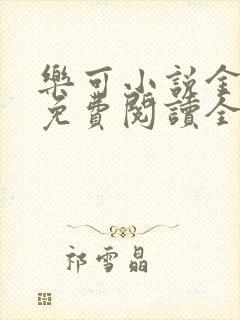 樂可小說全
免費閱讀全
祁雪晶